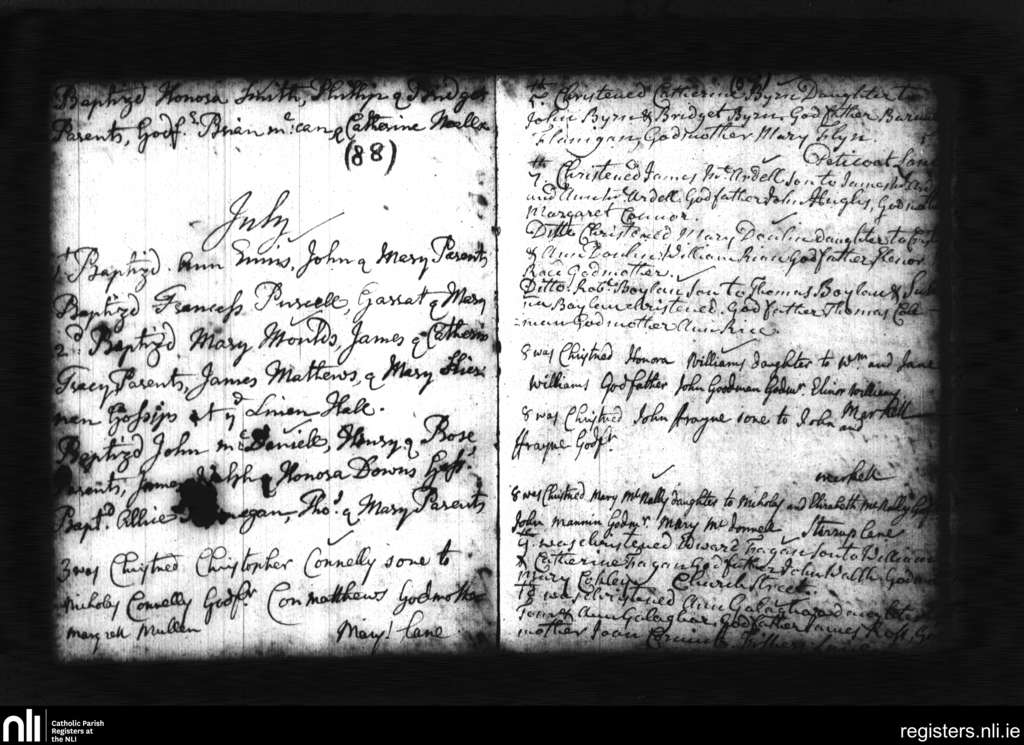 Baptiz'd Honora Smith, Phillip & Bridget
Parents, Godf.s Brian mc:can & Catherine
(88)
July
1st Baptiz'd Ann Ennis, John & Mary Parents
Baptiz'd Francess Purcell, Garrat & Mary
2d Baptiz'd Mary Moulds, James & Catherin
Tracy Parents, James Mathews, & Mary
nan Gossips at ye Linnen Hall.
Baptiz'd John mc:Daniell, Henry & Rose
Parents, James & Honora Downs Goss:
Bapt.d Allice Tho:s & Mary Parents
3 was Christned Christopher Connelly sone to
Nicholas Connelly Godfr Con matthews Godmother
margrett Mullen Mary's lane
(89)
5th Christened Catherine Byrn Daughter to
John Byrn & Bridget Byrn Godfather
Flanigan, Godmother Mary Flyn.
Peticoat Lane
7th Christened James Mc Ardell Son to James
and Ann Mc Ardell Godfather John Hughs, Godmother
Margaret Connor.
Ditto Christened Mary Doulin daughter to
& Ann Doulin William Rian Godfather
Race Godmother.
Ditto Robt Boylan Son to Thomas Boylan &
Boylan christened. Godfather Thomas
man Godmother Ann Rice
8 was Christned Honora Williams daughter to Wm and Jane
Williams Godfather John Goodman Godmr Elinor Williams
8 was Christned John ffrayne sone to John and
ffrayne Godfr
8 was Christned Mary Mc Nally daughter to Nicholas and Elizabeth Mc Nally Godf
John mannin Godmr Mary Mc donnell Stirrup lane
was christened Edward Fagan Son to William
& Catherine Fagan Godfather John Walsh Godmo
Mary Church Street.
was christened Ann Galaghar daughter to
James & Ann Galaghar, Godfather James
mother Joan
nli
Catholic Parish
Registers at
the NLI
registers.nli.ie